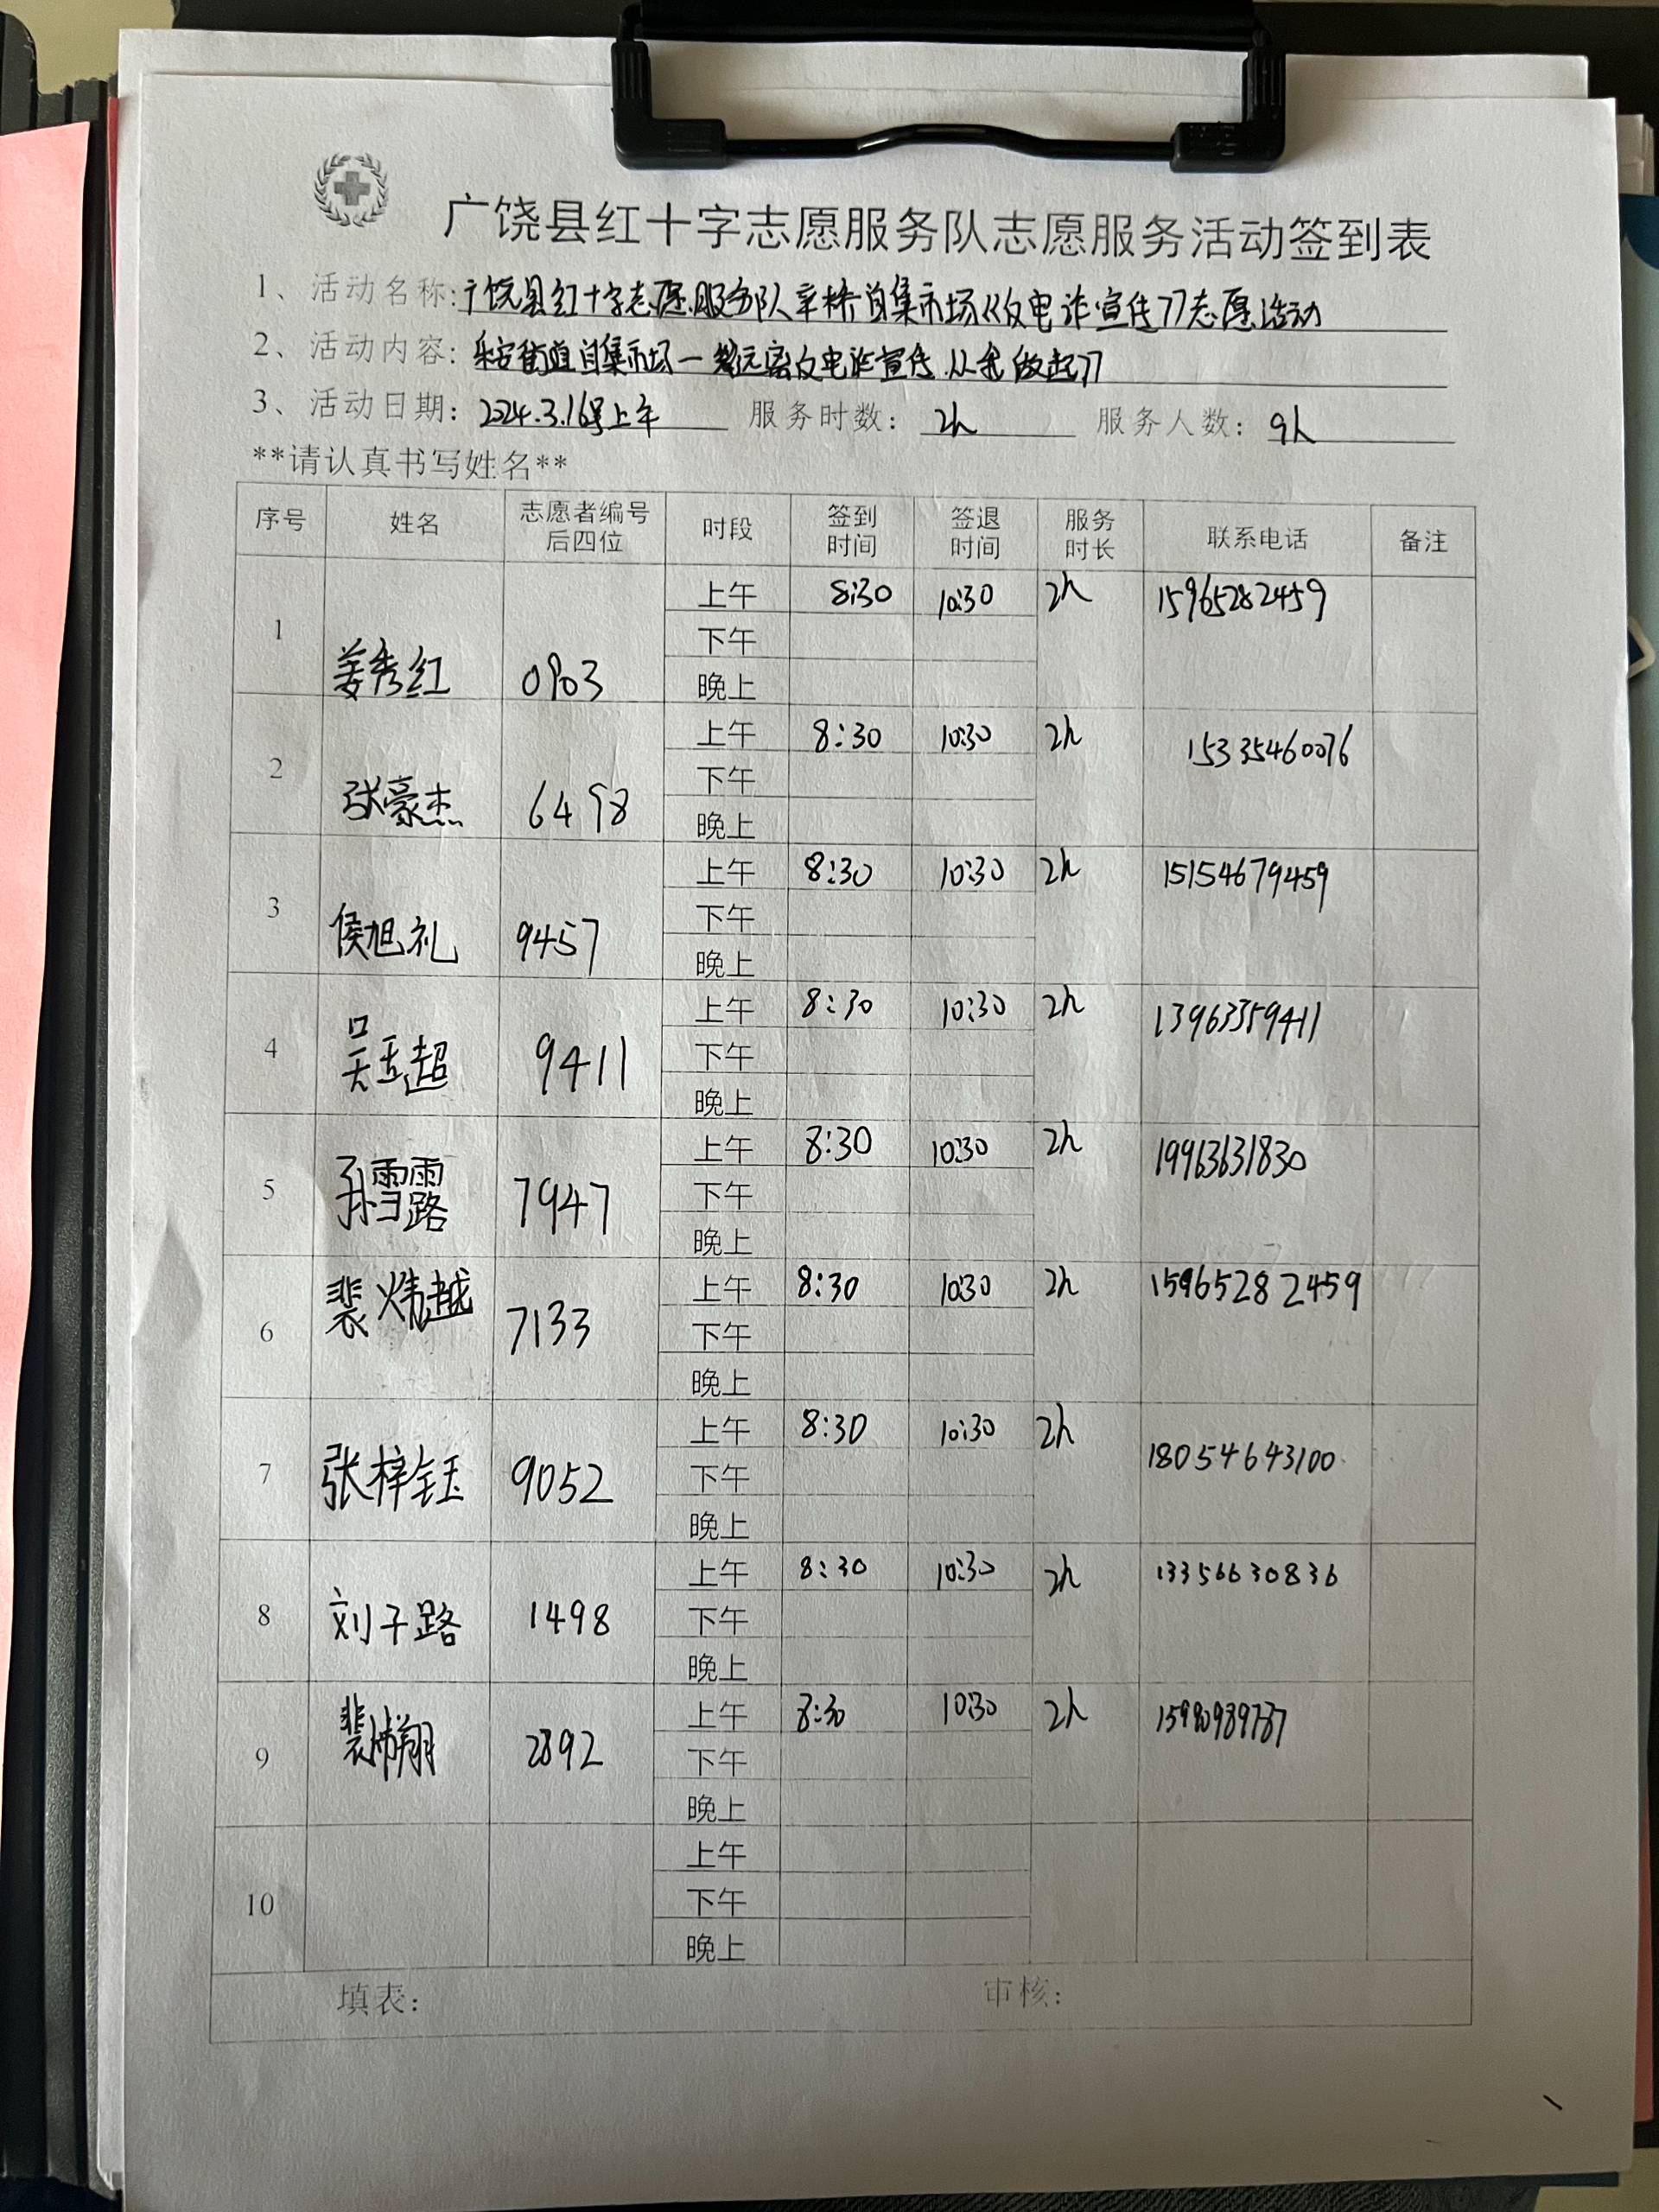 广饶县红十字志愿服务队志愿服务活动签到表
1、活动名称:广饶县红十字志愿服务队辛桥自集市场《反电诈宣传》志愿活动
2、活动内容:乐安街道自集市场一 远离反电诈宣传 从我做起》
3、活动日期:2024.3.16号上午 服务时数:2h 服务人数:9人
**请认真书写姓名**
序号 姓名 志愿者编号后四位 时段 签到时间 签退时间 服务时长 联系电话 备注
1 姜秀红 0903 上午 8:30 10:30 2h 15965282459
下午
晚上
2 张豪杰 6498 上午 8:30 10:30 2h 15335460076
下午
晚上
3 侯旭礼 9457 上午 8:30 10:30 2h 15154679459
下午
晚上
4 吴玉超 9411 上午 8:30 10:30 2h 13963359411
下午
晚上
5 孙雪露 7947 上午 8:30 10:30 2h 19963631830
下午
晚上
6 裴炜越 7133 上午 8:30 10:30 2h 15965282459
下午
晚上
7 张梓钰 9052 上午 8:30 10:30 2h 18054643100
下午
晚上
8 刘子路 1498 上午 8:30 10:30 2h 13356630836
下午
晚上
9 2892 上午 8:30 10:30 2h
下午
晚上
10 上午
下午
晚上
填表: 审核: